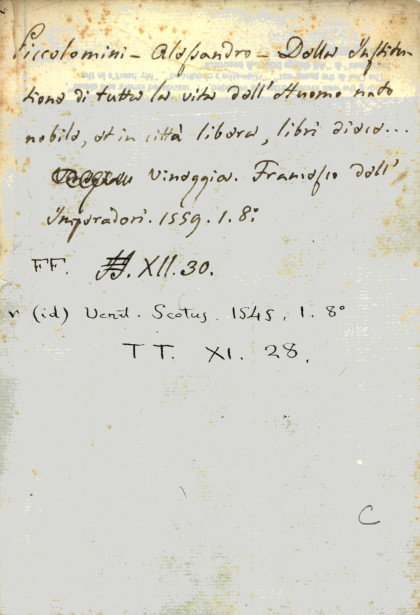 Piccolomini - Alessandro - Della Institu-
tione di tutta la vita dell' Huomo nato
nobile, et in città libera, libri dieci...
Vineggia. Francesco dell'
Imperadori. 1559. 1. 8.º
FF. XII. 30.
v (id) Venet. Scotus. 1545. 1. 8º
TT. XI. 28.
C